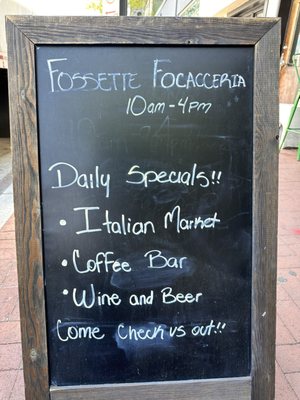 Fossette Focacceria
10am-4pm
Daily Specials!!
• Italian Market
• Coffee Bar
• Wine and Beer
Come check us out!!